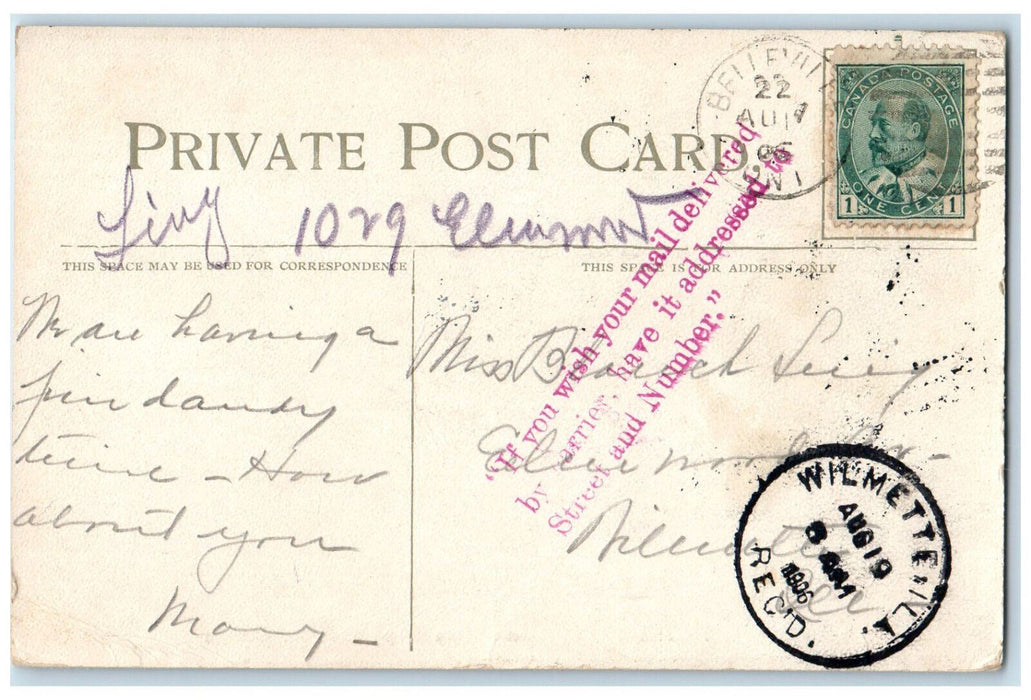 PRIVATE POST CARD.
BELLEVILLE
22
AU 17
06
ONT
CANADA POSTAGE
1 ONE CENT 1
1029 Elmwood
THIS SPACE MAY BE USED FOR CORRESPONDENCE
THIS SPACE IS FOR ADDRESS ONLY
"If you wish your mail delivered
by carrier, have it addressed to
Street and Number."
We are having a
fine dandy
time - How
about you
Mary -
Miss
Elmwood Av-
Wilmette
Ill
WILMETTE, ILL.
AUG 19
8 AM
1906
REC'D.